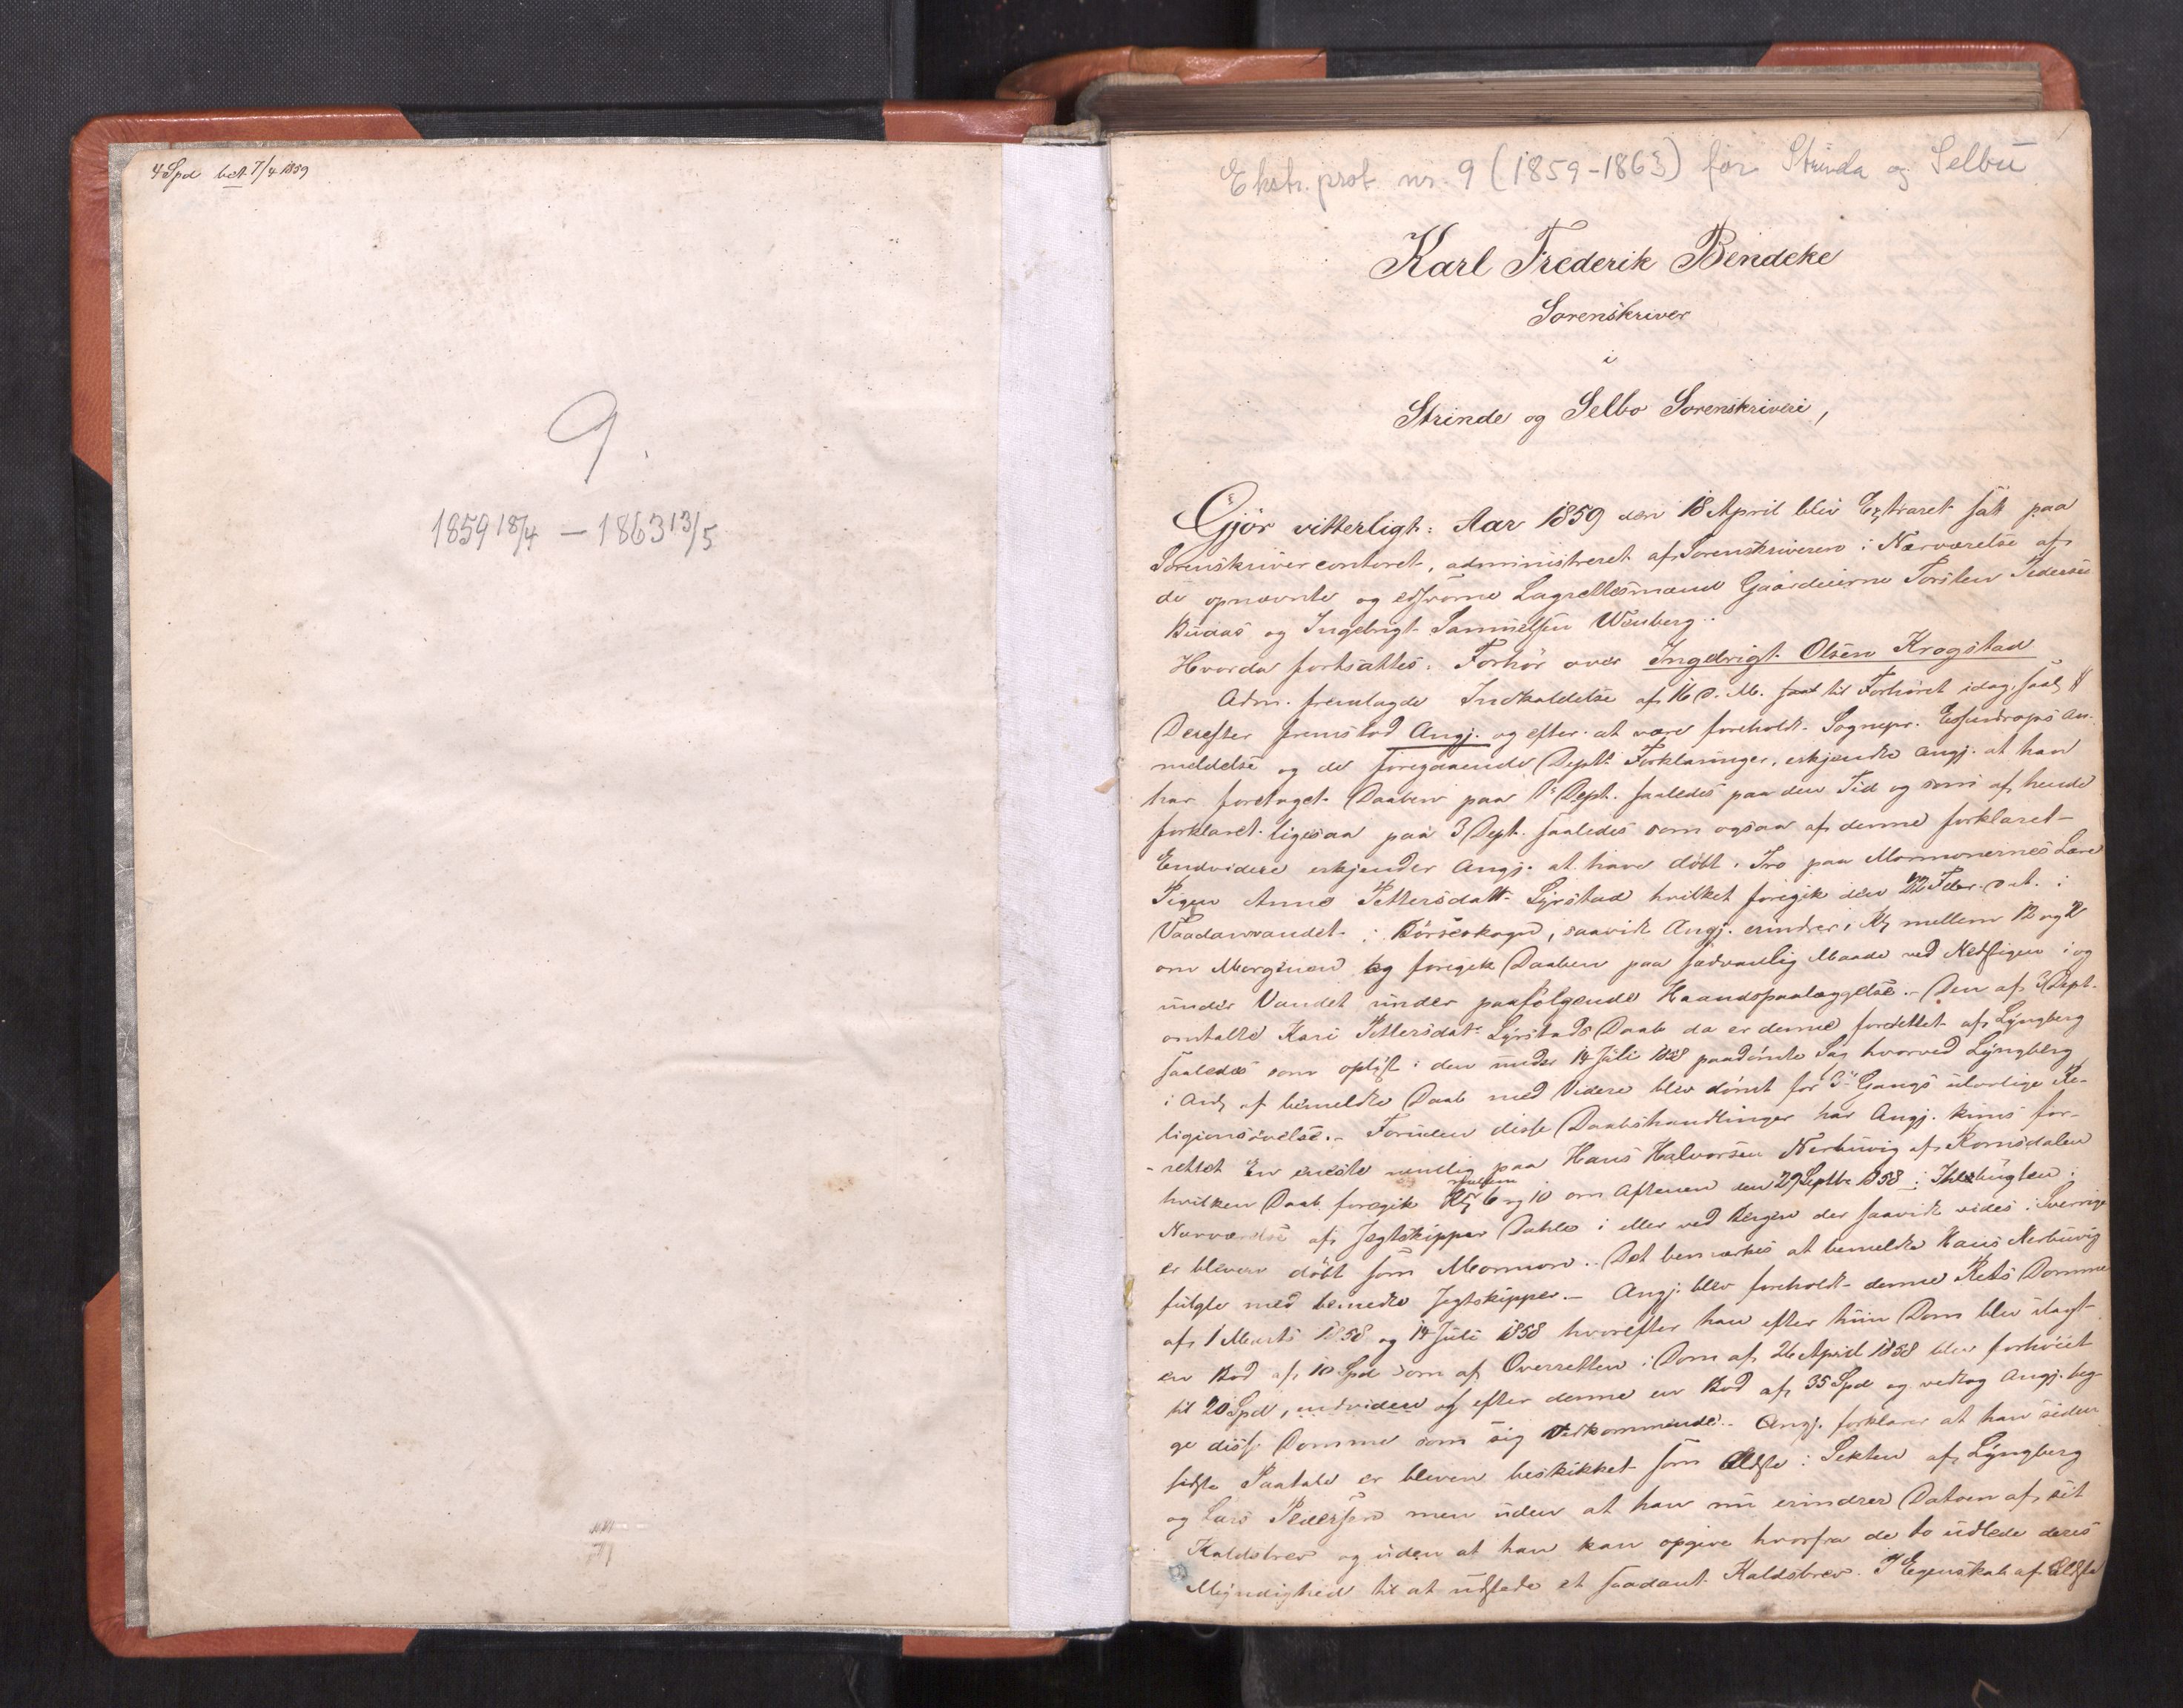 4 Spd bet 7/4 1859
9.
1859 18/4 — 1863 13/5
Ekstr. prot. nr. 9 (1859-1863) for Strinda og Selbu
Karl Frederik Bendeke
Sorenskriver
i
Strinde og Selbo Sorenskriveri,
Gjør vitterligt: Aar 1859 den 18 April blev Extraret sat paa
Sorenskrivercontoret, administreret af Sorenskriveren i Nærværelse af
de opnævnte og edsvorne Lagrettesmænd Gaardeierne Torsten Pedersen
Buaas og Ingebrigt Samuelsen Wenberg.
Hvorda fortsattes: Forhør over Ingebrigt Olsen Krogstad
Adm. fremlagde Indkaldelse af 16 d. M. til Forhøret idag
Derefter fremstod Angj. og efter at være foreholdt Sognepr. Essendrops An-
meldelse og de foregaaende Dept. Forklaringer, erkjendte Angj. at han
har foretaget Daaben paa 1ste Dept. saaledes paa den Tid og som af hende
forklaret ligesaa paa 3 Dept. saaledes som ogsaa af denne forklaret -
Endvidere erkjender Angj. at have døbt i Tro paa Mormonernes Lære
Pigen Anne Pettersdatt. Lyrstad hvilket foregik den 22 Febr. d. A. i
Vaadanvandet i Børseskogn, saavidt Angj. erindrer, Kl. mellem 12 og 2
om Morgenen og foregik Daaben paa sædvanlig Maade ved Nedstigen i og
under Vandet under paafølgende Haandspaalæggelse. - Den af 3 Dept.
omtalte Kari Pettersdatr Lyrstads Daab da er denne forrettet af Lyngberg
saaledes som oplyst i den under 14 Juli 1858 paadømte Sag hvorved Lyngberg
i Anl. af bemeldte Daab med Videre blev dømt for 3die Gangs ulovlige Re-
ligionsøvelse. - Foruden disse Daabshandlinger har Angj. kuns for-
rettet en eneste nemlig paa Hans Halvorsen Nerbuvig af Romsdalen
hvilken Daab foregik Kl. mellem 6 og 10 om Aftenen den 29 Septbr 1858 i Ihlebugten i
Nærværelse af Jegtskipper Dahle i eller ved Bergen der saavidt vides i Sverrige
er bleven døbt som Mormon. Det bemærkes at bemeldte Hans Nerbuvig
fulgte med bemeldte Jegtskipper. - Angj. blev foreholdt denne Rets Domme
af 1 Marts 1858 og 14 Juli 1858 hvorefter han efter hiin Dom blev ilagt
en Bod af 10 Spd som af Overretten i Dom af 26 April 1858 blev forhøiet
til 20 Spd, endvidere og efter denne en Bod af 35 Spd og vedtog Angj. beg-
ge disse Domme som sig vedkommende. - Angj. forklarer at han siden
sidste Paatale er bleven beskikket som Ældste i Sekten af Lyngberg
og Lars Pedersen men uden at han nu erindrer Datoen af sit
Kaldsbrev og uden at han kan opgive hvorfra de to udlede deres
Myndighed til at udstede et saadant Kaldsbrev. I Egenskab af Ældste